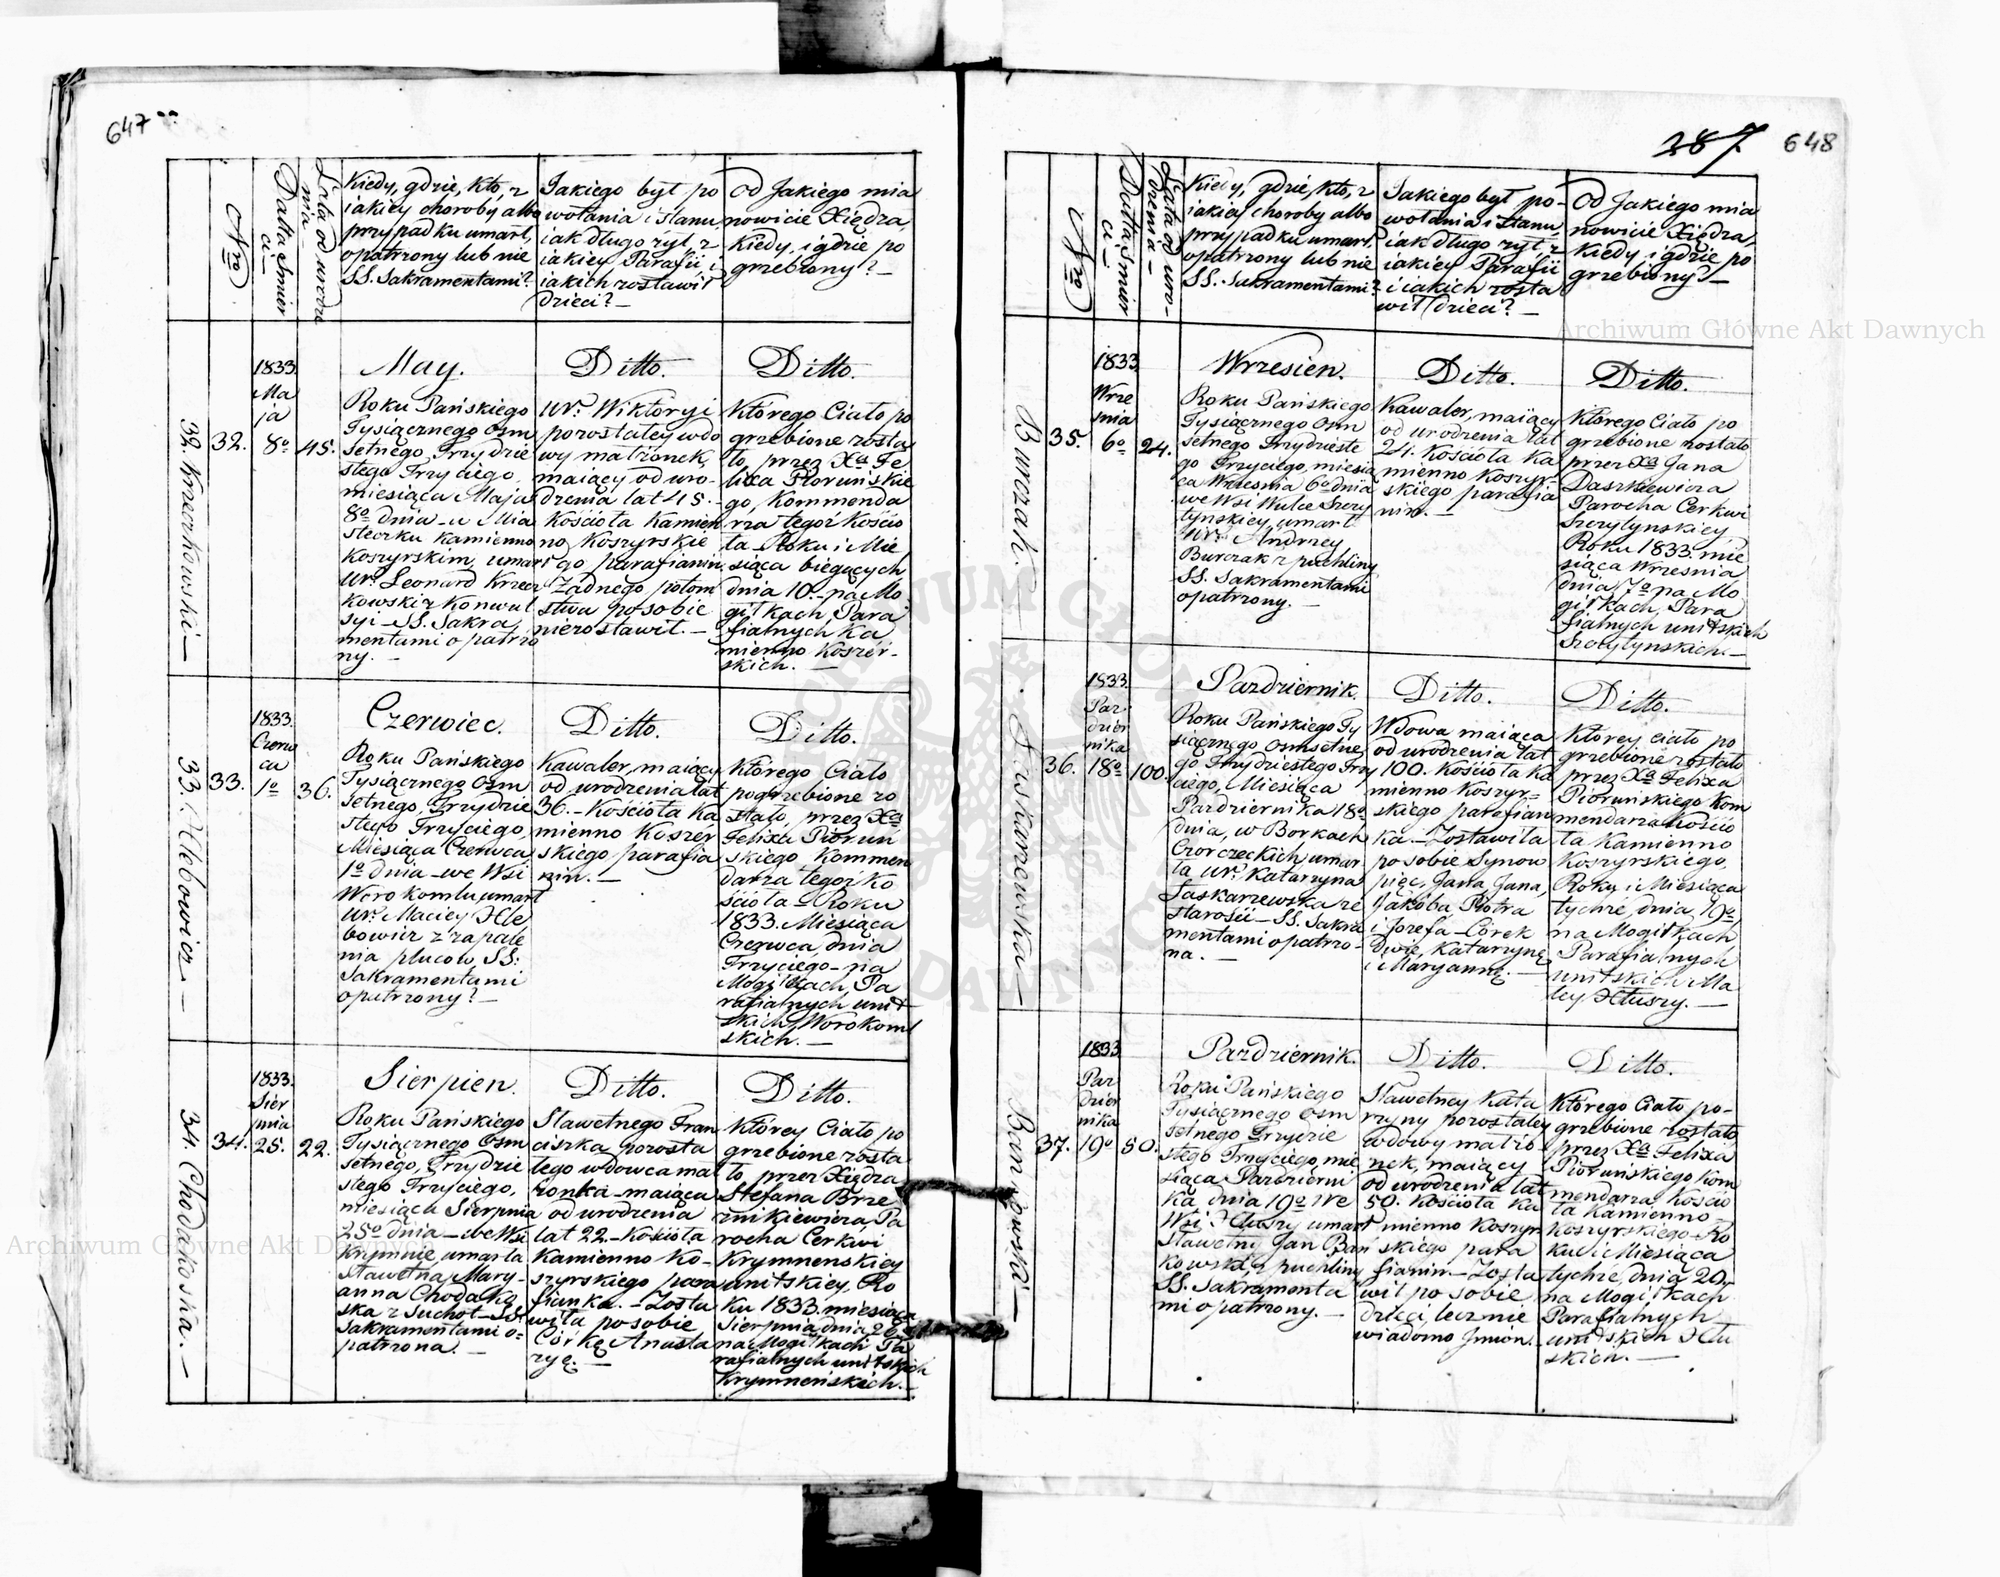 647
Nro
Datta Smier
ci —
Lata od urodze
nia —
Kiedy, gdzie, kto, z
iakiey choroby albo
przypadku umarł,
opatrzony lub nie
SS. Sakramentami?
Jakiego był po
wołania i stanu,
iak długo żył, z
iakiey Parafii i
iakich zostawił
dzieci? —
Od Jakiego mia
nowicie Xiędza,
Kiedy, i gdzie po
grzebiony? —
32. Krzeczkowski —
32.
1833
Ma
ja
8º
45.
May.
Roku Pańskiego
Tysiącznego Osm
setnego, Trzydzie
stego Trzyciego,
miesiąca Maja
8º dnia – w Mia
steczku Kamienno
Koszyrskim, umarł
Ur: Leonard Krzecz
kowski z Konwul
syi – SS. Sakra
mentami opatrzo
ny. —
Ditto.
Ur: Wiktoryi
pozostałey wdo
wy małżonek,
maiący od uro-
dzenia lat 45. –
Kościoła Kamien
no Koszyrskie
go parafianin,
żadnego potom
stwa po sobie
niezostawił. —
Ditto.
Którego Ciało po
grzebione zosta
ło, przez Xa Fe
lixa Pioruńskie
go, Kommenda
rza tegoż Kościo
ła – Roku i Mie
siąca bieżących
dnia 10. – na Mo
giłkach, Para
fialnych Ka
mienno Koszer-
skich. —
33. Hlebowicz —
33.
1833.
Czerw
ca
1º
36.
Czerwiec.
Roku Pańskiego
Tysiącznego Osm
setnego, Trzydzie
stego Trzyciego,
Miesiąca Czerwca
1º dnia – we Wsi
Worokomlu umarł
Ur: Maciey Hle
bowicz z zapale
nia płucow SS:
Sakramentami
opatrzony? —
Ditto.
Kawaler, maiący
od urodzenia lat
36. – Kościoła Ka
mienno Koszer
skiego parafia
nin. —
Ditto.
Którego Ciało
pogrzebione zo
stało, przez Xa
Felixa Piorun
skiego Kommen
darza tegoż Ko
ścioła – Roku
1833. Miesiąca
Czerwca dnia
Trzyciego – na
Mogiłkach, Pa
rafialnych unit
skich, Worokoml
skich. —
34. Chodakoska. —
34.
1833.
Sier
pnia
25.
22.
Sierpien.
Roku Pańskiego
Tysiącznego Osm
setnego, Trzydzie
stego Trzyciego,
miesiąca Sierpnia
25º dnia – we Wsi
Krymnie, umarła
Sławetna Mary-
anna Chodako
ska z Suchot – SS.
Sakramentami o-
patrzona. —
Ditto.
Sławetnego Fran
ciszka pozosta
łego wdowca mał
żonka – maiąca
od urodzenia
lat 22. – Kościoła
Kamienno Ko-
szyrskiego para
fianka. – Zosta
wiła po sobie
Córkę Anasta
zyę. —
Ditto.
Którey Ciało po
grzebione zosta
ło przez Xiędza
Stefana Brze
znikiewicza, Pa
rocha Cerkwi
Krymnenskiey
unitskiey, Ro
ku 1833. miesiąca
Sierpnia dnia
na Mogiłkach Pa
rafialnych unitskich
Krymneńskich. —
387. 648
Nro
Datta Smier
ci —
Lata od uro-
dzenia —
Kiedy, gdzie, kto, z
iakiey choroby albo
przypadku umarł,
opatrzony lub nie
SS. Sakramentami?
Jakiego był po-
wołania i stanu,
iak długo żył, z
iakiey Parafii
i iakich zosta
wił dzieci? —
Od Jakiego mia
nowicie Xiędza,
Kiedy i gdzie po
grzebiony? —
Burczak. —
35.
1833
Wrze
śnia
6º
24.
Wrzesien.
Roku Pańskiego
Tysiącznego Osm
setnego Trzydzieste
go Trzyciego, miesią
ca Wrzesnia 6º dnia
we Wsi Wulce Szczy
tynskiey, umarł
Ur: Andrzey
Burczak z puchliny
SS. Sakramentami
opatrzony. —
Ditto.
Kawaler, maiący
od urodzenia lat
24. Kościoła Ka
mienno Koszyr-
skiego parafia
nin. —
Ditto.
Którego Ciało po
grzebione zostało
przez Xa Jana
Daszkiewicza
Parocha Cerkwi
Szczytynskiey
Roku 1833. mie
siąca Wrzesnia
dnia 7º na Mo
giłkach, Para
fialnych unitskich
Szczytynskich. —
Łaskarzewska —
36.
1833.
Paz
dzier
nika
18º
100.
Pazdziernik.
Roku Pańskiego Ty
siącznego, Osmsetne
go Trzydziestego Trzy
ciego, Miesiąca
Pazdziernika 18º
dnia, w Borkach
Czorczeckich umar
ła Ur: Katarzyna
Łaskarzewska ze
starości – SS. Sakra
mentami opatrzo-
na. —
Ditto.
Wdowa maiąca
od urodzenia lat
100. Kościoła Ka
mienno Koszyr-
skiego parafian
ka – Zostawiła
po sobie Synow
pięc, Jana, Jana,
Jakóba, Piotra
i Jozefa – Córek
Dwie, Katarzynę
i Maryannę. —
Ditto.
Którey ciało po
grzebione zostało
przez Xa Felixa
Pioruńskiego Kom
mendarza Kościo
ła Kamienno
Koszyrskiego,
Roku i Miesiąca
tychże, dnia 19º
na Mogiłkach
Parafialnych
unitskich Ma
łey Hłuszy. —
Bankowski —
37.
1833
Paz
dzier
nika
19º
50.
Pazdziernik.
Roku Pańskiego
Tysiącznego Osm
setnego Trzydzie
stego Trzyciego, mie
siąca Pazdzierni
ka, dnia 19º We
Wsi Hłuszy umarł
Sławetny Jan Bań
kowski, z puchliny
SS. Sakramenta
mi opatrzony. —
Ditto.
Sławetney Kata
rzyny pozostałey
wdowy małżo
nek, maiący
od urodzenia lat
50. Kościoła Ka
mienno Koszyr
skiego para
fianin – Zosta
wił po sobie
dzieci, lecz nie
wiadomo Jmion.
Ditto.
Którego Ciało po-
grzebione zostało
przez Xa Felixa
Pioruńskiego Kom
mendarza Kościo
ła Kamienno
Koszyrskiego – Ro
ku i Miesiąca
tychże, dnia 20,
na Mogiłkach
Parafialnych
unitskich Hłu
skich. —
Archiwum Główne Akt Dawnych
Archiwum Główne Akt Dawnych
ARCHIWUM GŁÓWNE AKT DAWNYCH